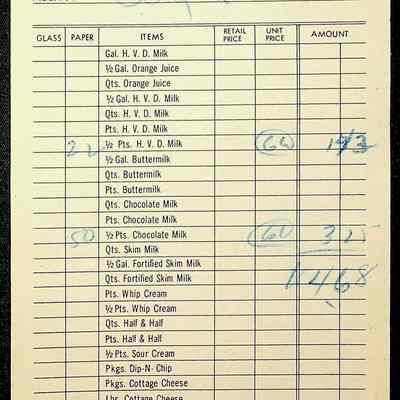 GLASS PAPER ITEMS RETAIL PRICE UNIT PRICE AMOUNT
Gal. H. V. D. Milk
½ Gal. Orange Juice
Qts. Orange Juice
½ Gal. H. V. D. Milk
Qts. H. V. D. Milk
Pts. H. V. D. Milk
½ Pts. H. V. D. Milk
½ Gal. Buttermilk
Qts. Buttermilk
Pts. Buttermilk
Qts. Chocolate Milk
Pts. Chocolate Milk
50 ½ Pts. Chocolate Milk 3 25
Qts. Skim Milk
½ Gal. Fortified Skim Milk
468
Qts. Fortified Skim Milk
Pts. Whip Cream
½ Pts. Whip Cream
Qts. Half & Half
Pts. Half & Half
½ Pts. Sour Cream
Pkgs. Dip-N- Chip
Pkgs. Cottage Cheese
Lbs. Cottage Cheese